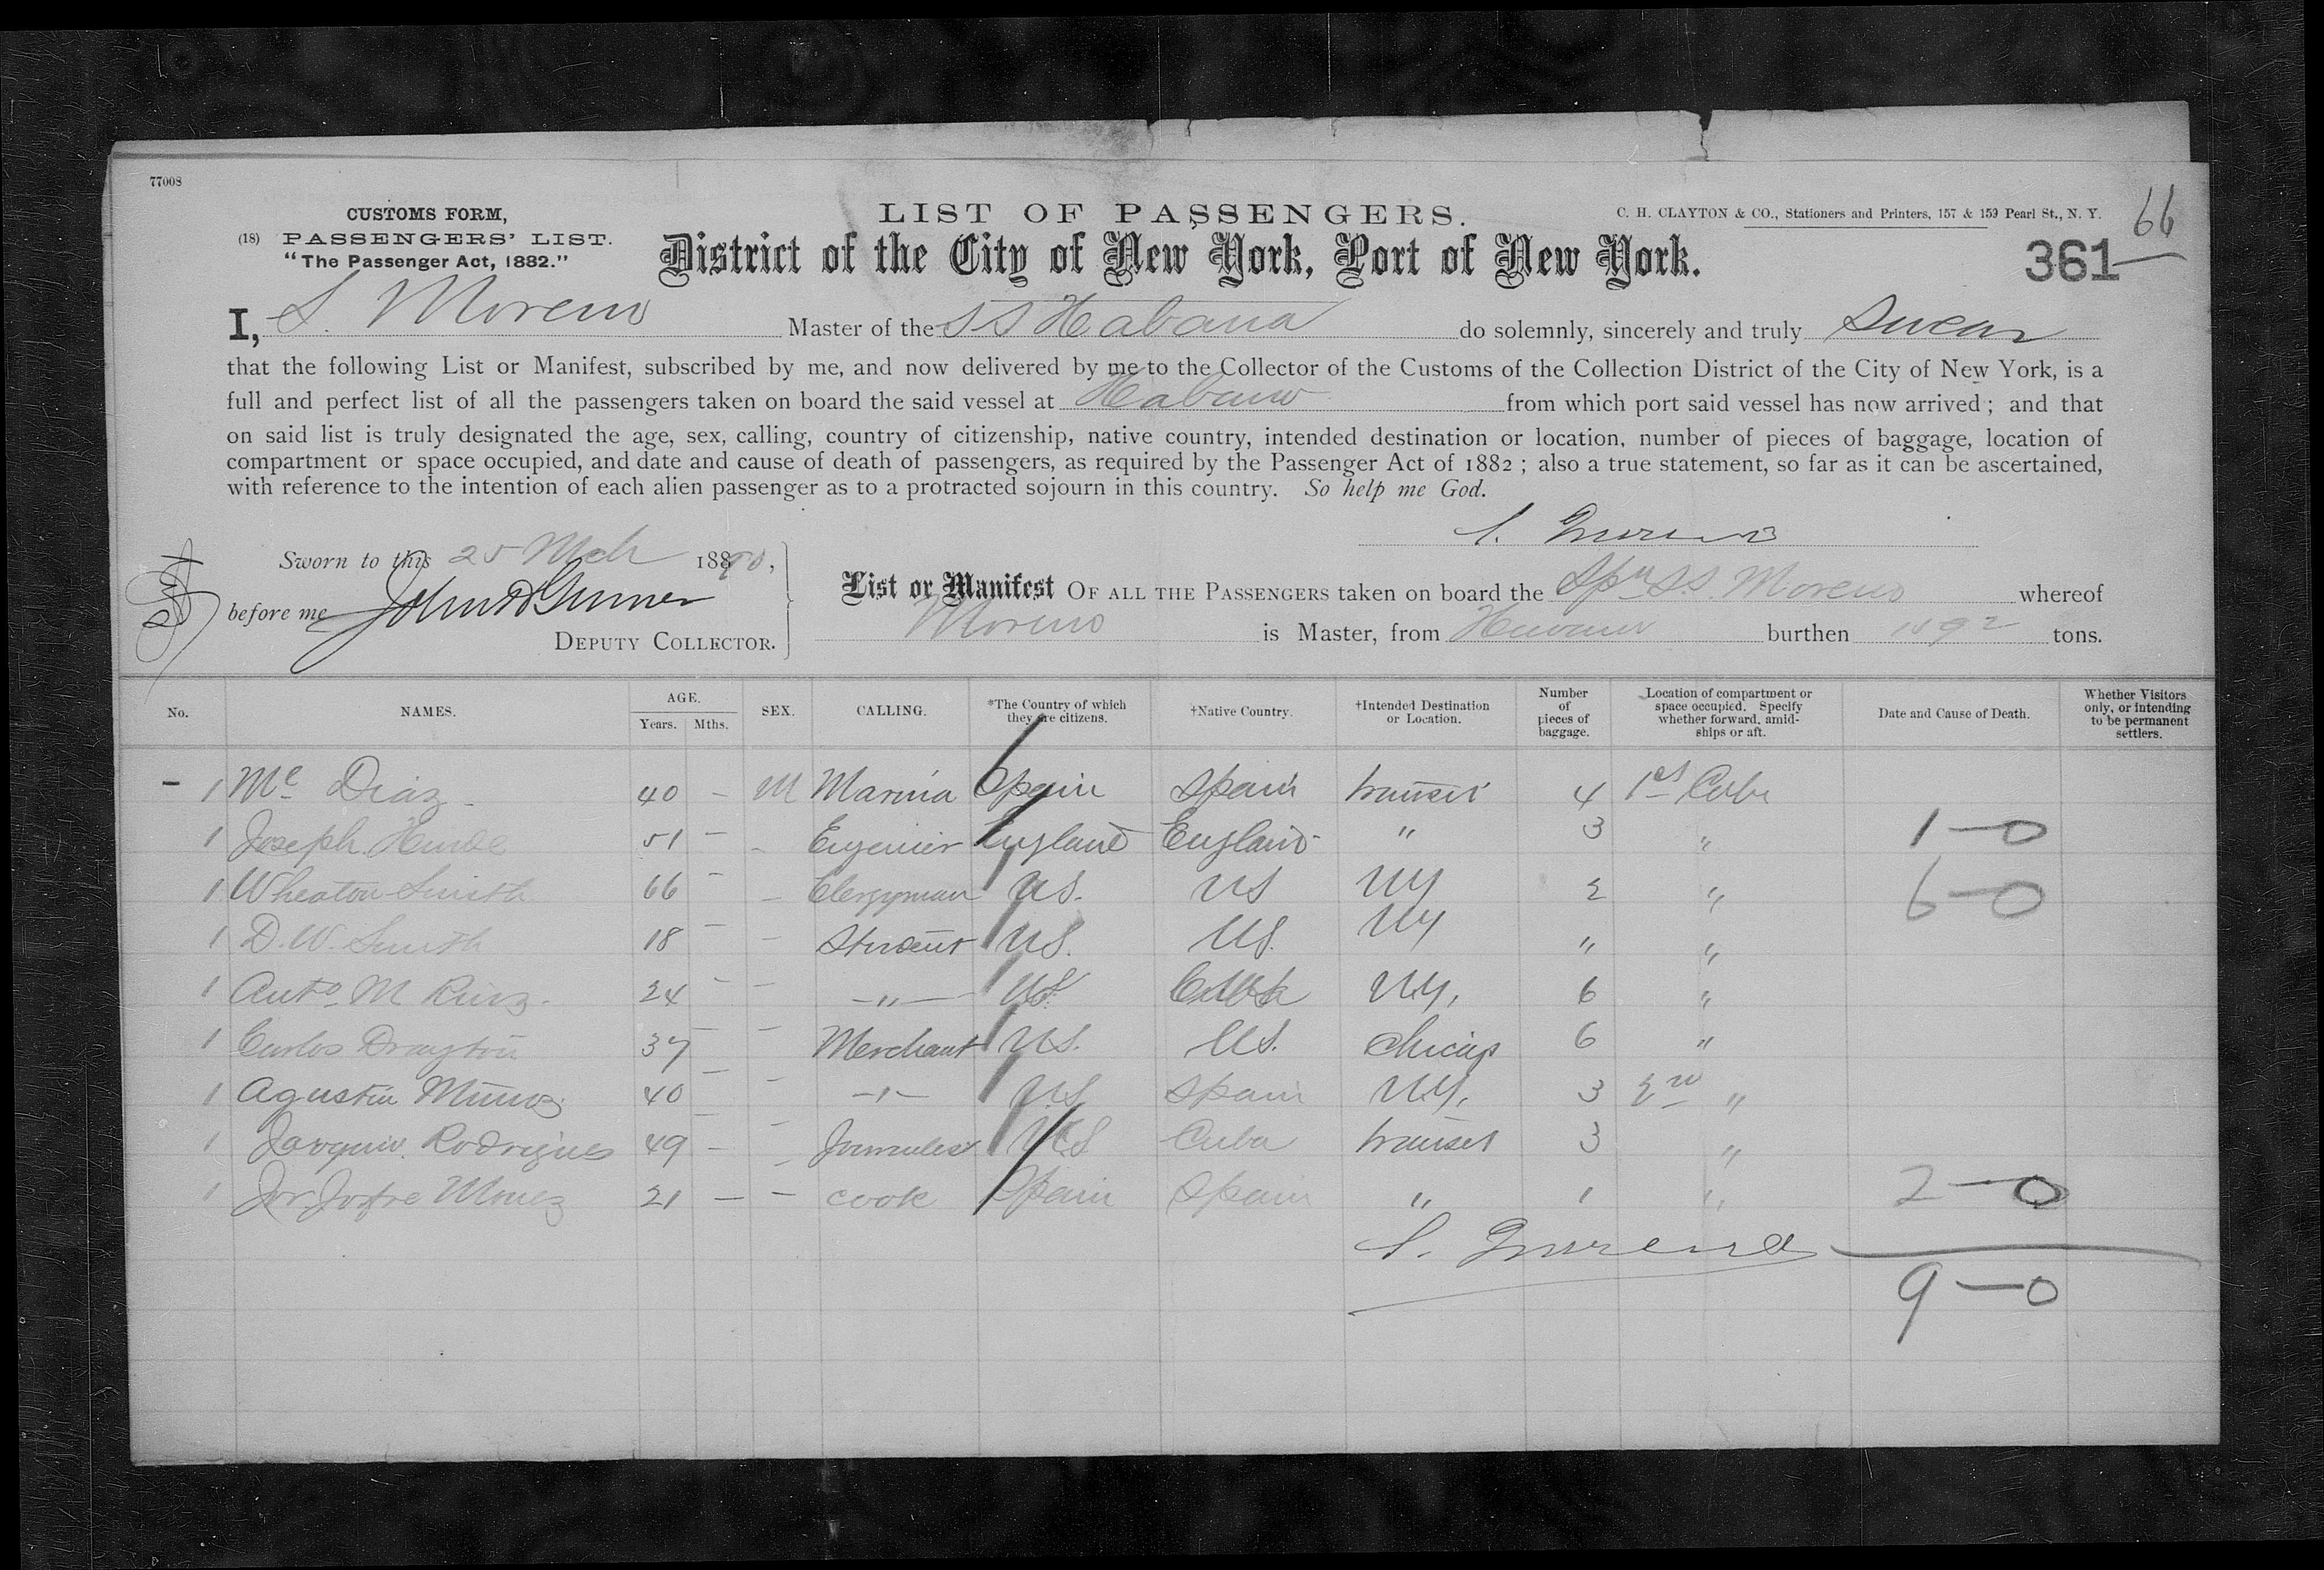 77008
CUSTOMS FORM,
(18) PASSENGERS' LIST.
"The Passenger Act, 1882."
LIST OF PASSENGERS.
District of the City of New York, Port of New York.
C. H. CLAYTON & CO., Stationers and Printers, 157 & 159 Pearl St., N. Y.
66
361
I, S. Moreno Master of the SS Habana do solemnly, sincerely and truly swear
that the following List or Manifest, subscribed by me, and now delivered by me to the Collector of the Customs of the Collection District of the City of New York, is a
full and perfect list of all the passengers taken on board the said vessel at Habana from which port said vessel has now arrived; and that
on said list is truly designated the age, sex, calling, country of citizenship, native country, intended destination or location, number of pieces of baggage, location of
compartment or space occupied, and date and cause of death of passengers, as required by the Passenger Act of 1882; also a true statement, so far as it can be ascertained,
with reference to the intention of each alien passenger as to a protracted sojourn in this country. So help me God.
S. Moreno
Sworn to this 25 Mch 1890,
before me John
DEPUTY COLLECTOR.
List or Manifest OF ALL THE PASSENGERS taken on board the Spn SS. Moreno whereof
Moreno is Master, from Havana burthen tons.
No. NAMES. AGE. Years. Mths. SEX. CALLING. *The Country of which they are citizens. †Native Country. †Intended Destination or Location. Number of pieces of baggage. Location of compartment or space occupied. Specify whether forward, amidships or aft. Date and Cause of Death. Whether Visitors only, or intending to be permanent settlers.
– 1 Ml Diaz 40 – M Marina Spain Spain transit 4 1st Cube
1 Joseph 51 – – England England " 3 " 1–0
1 Wheaton Smith 66 – – Clergyman US. US NY 2 " 6–0
1 D. W. Smith 18 – – Student US. US. NY " "
1 Anto M Ruiz 24 – – –"– US Cuba N.Y. 6 "
1 Carlos Drayton 37 – – Merchant US. US. Chicago 6 "
1 Agustin Munoz 40 – – –"– US Spain N.Y. 3 2nd "
1 Joaquin Rodrigues 49 – – Journalist US Cuba transit 3 "
1 21 – – cook Spain Spain " 1 " 2–0
S. Moreno
9–0